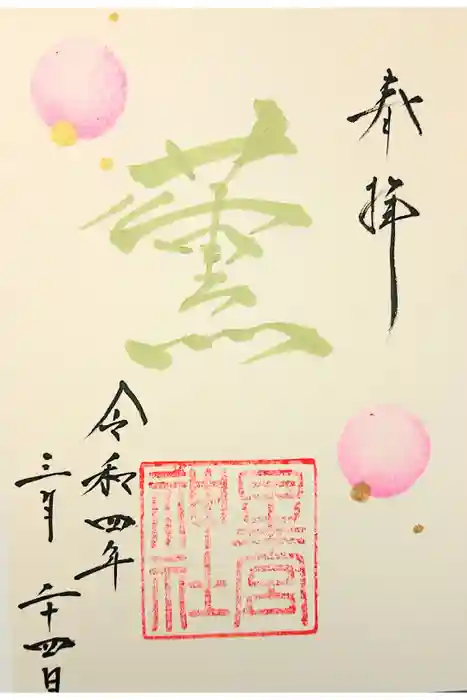 奉拝
薫
星宮
神社
令和四年
三月
二十四日